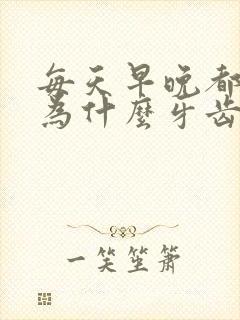 每天早晚都
為什麼牙齒
一笑笙簫